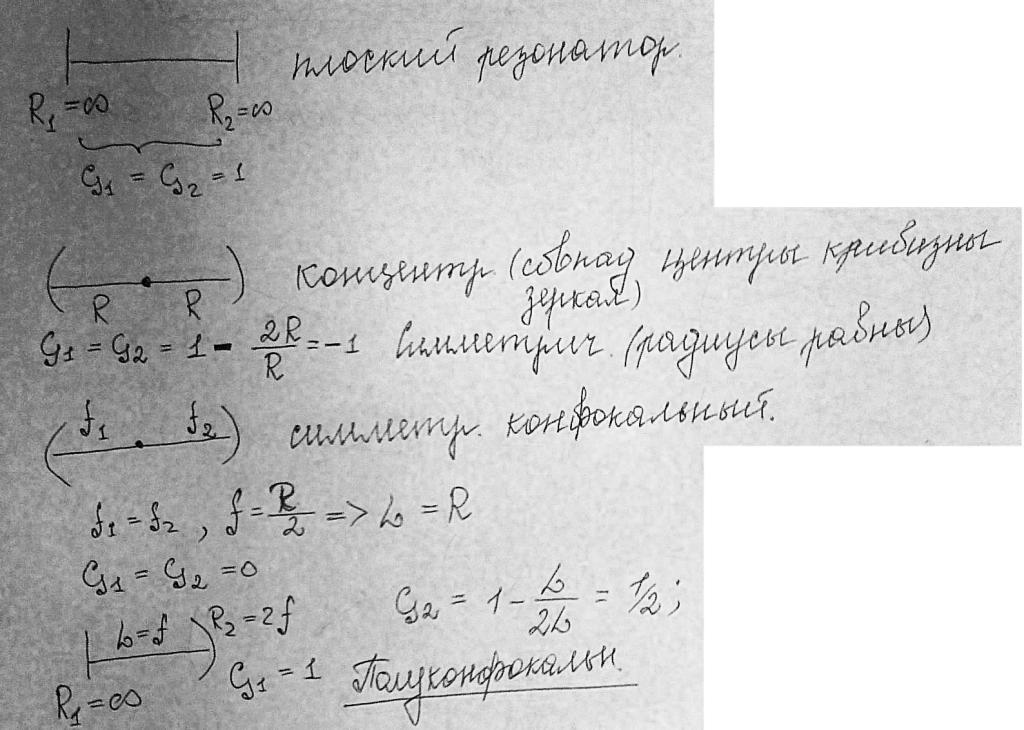 плоский резонатор.
R₁ = ∞ R₂ = ∞
G₁ = G₂ = 1
концентр. (совпад центры кривизны
зеркал)
R R
G₁ = G₂ = 1 - 2R/R = -1 Симметрич. (радиусы равны)
f₁ f₂ симметр. конфокальный.
f₁ = f₂ , f = R/2 => L = R
G₁ = G₂ = 0
G₂ = 1 - L/2L = 1/2;
L = f R₂ = 2f
R₁ = ∞ G₁ = 1 Полуконфокальн.